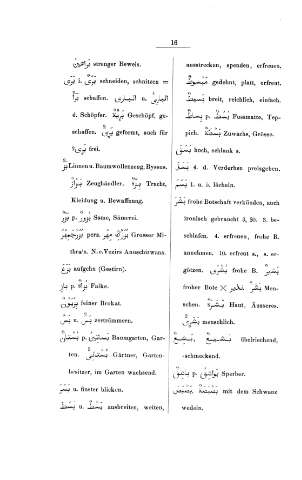 16
بُرْهَان strenger Beweis.
بَرَى i. بَرْي schneiden, schnitzen =
بَرَأَ schaffen. البَارِى u. البَارِئ
d. Schöpfer. بَرِيَّة Geschöpf, ge-
schaffen. بَرِىّ getrennt, auch für
بَرِىء frei.
بَزّ Linnen u. Baumwollenzeug, Byssus.
بَزَّاز Zeughändler. بِزَّة Tracht,
Kleidung u. Bewaffnung.
بَزْر p. بُزُور Same, Sämerei.
بُزُرْجْمِهْر pers. بُزُرْگ Grosser Mi-
thra's. N. e. Vezirs Anuschirwans.
بَزَغَ aufgehn (Gestirn).
باز p. بُزَاة Falke.
بِزْيَوْن feiner Brokat.
بَسَّ u. بَسّ zertrümmern.
بُسْتَان p. بَسَاتِين Baumgarten, Gar-
ten. بُسْتَانِىّ Gärtner, Garten-
besitzer, im Garten wachsend.
بَسَرَ u. finster blicken.
بَسَطَ u. بَسْط ausbreiten, weiten,
ausstrecken, spenden, erfreuen.
مَبْسُوط gedehnt, platt, erfreut.
بَسِيط breit, reichlich, einfach.
بِسَاط p. بُسُط Fussmatte, Tep-
pich. بَسْطَة Zuwachs, Grösse.
بَسَقَ hoch, schlank s.
بَسَلَ 4. d. Verderben preisgeben.
بَسَمَ i. u. 5. lächeln.
بَشَرَ frohe Botschaft verkünden, auch
ironisch gebraucht 3, 20. 3. be-
schlafen. 4. erfreuen, frohe B.
annehmen. 10. erfreut s., s. er-
götzen. بُشْرَى frohe B. بَشِير
froher Bote × نذير بَشَر Men-
schen. بَشَرَة Haut, Äusseres.
بَشَرِىّ menschlich.
بَشِع u. بَشِيع übelriechend,
-schmeckend.
بَاشِق p. بَوَاشِق Sperber.
بَصْبَصَ بَصْبَصَة mit dem Schwanz
wedeln.